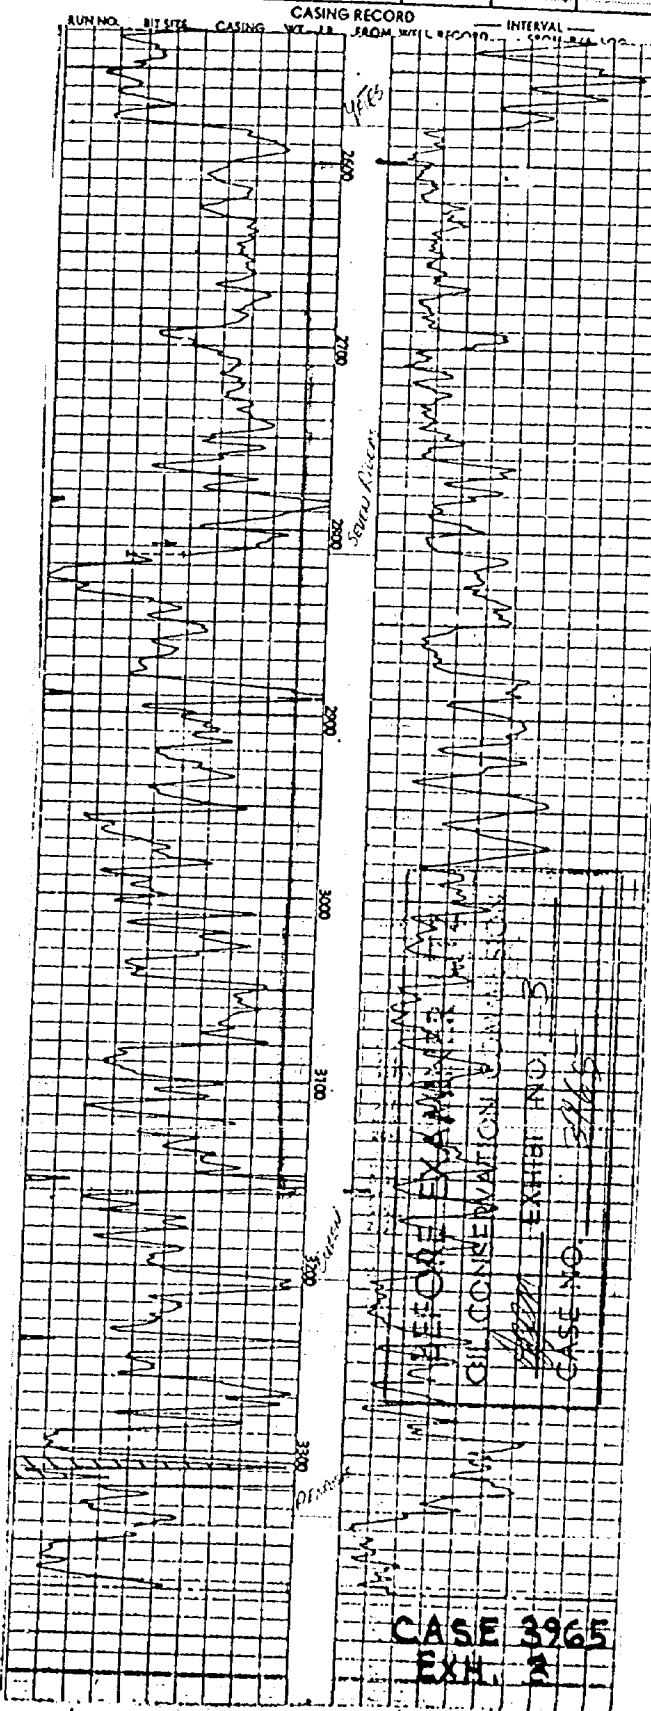 CASING RECORD
RUN NO. BIT SIZE CASING WT. LB. FROM WELL RECORD INTERVAL
YATES
2600
2700
SEVEN RIVERS
2800
2900
3000
3100
QUEEN
3200
3300
BEFORE EXAMINER
OIL CONSERVATION COMMISSION
EXHIBIT NO. 3
CASE NO. 3965
CASE 3965
EXH.